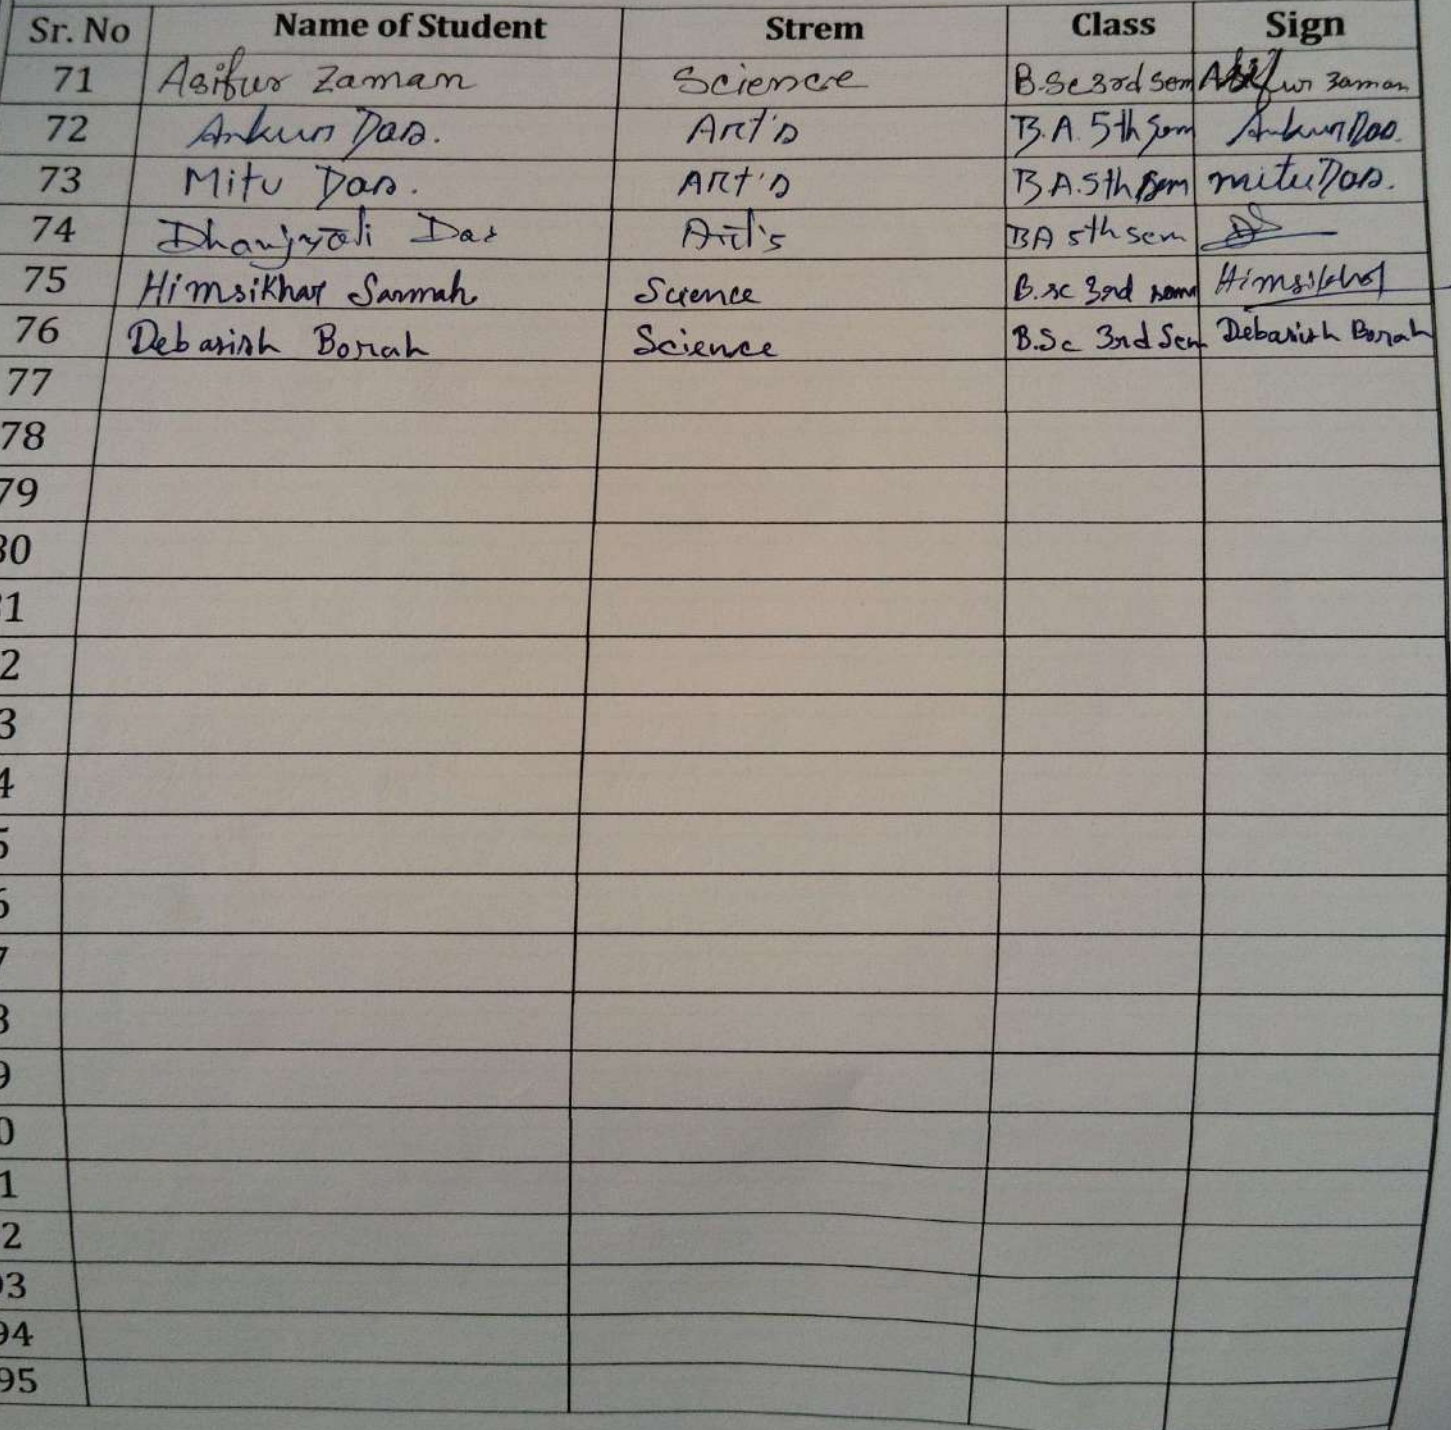 Sr. No Name of Student Strem Class Sign
71 Asifur Zaman Science B.Sc 3rd Sem Asifur Zaman
72 Ankur Das. Art's B.A. 5th Sem Ankur Das.
73 Mitu Das. Art's B.A. 5th Sem mitu Das.
74 Dhanjyoti Das Art's BA 5th sem
75 Himsikhar Sarmah Science B.sc 3rd sem Himsikhar
76 Debasish Borah Science B.Sc 3rd Sem Debasish Borah
77
78
79
80
1
2
3
4
5
6
7
8
9
0
1
2
93
94
95